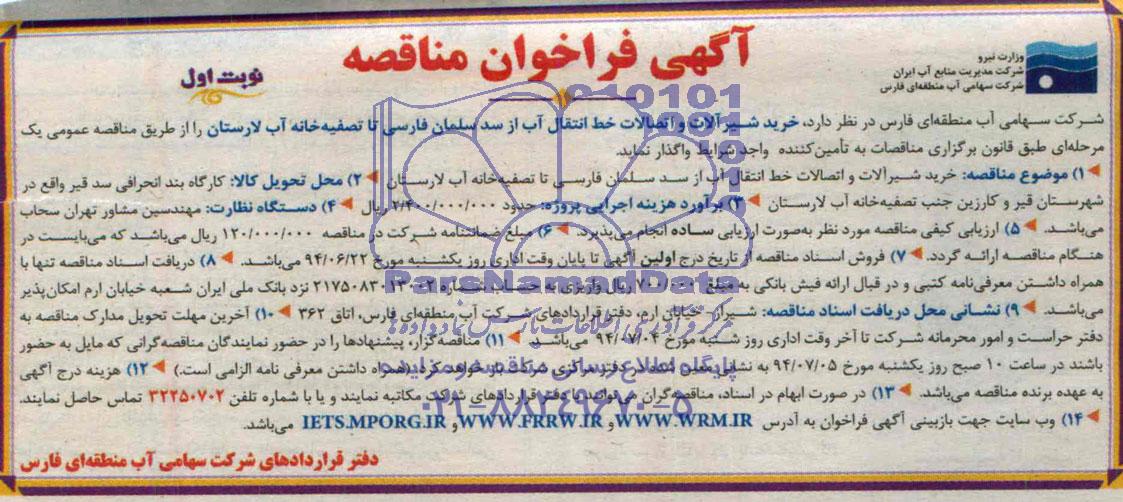 آگهی فراخوان مناقصه
نوبت اول
وزارت نیرو
شرکت مدیریت منابع آب ایران
شرکت سهامی آب منطقه‌ای فارس
شرکت سهامی آب منطقه‌ای فارس در نظر دارد، خرید شیرآلات و اتصالات خط انتقال آب از سد سلمان فارسی تا تصفیه‌خانه آب لارستان را از طریق مناقصه عمومی یک
مرحله‌ای طبق قانون برگزاری مناقصات به تأمین‌کننده واجد شرایط واگذار نماید.
۱) موضوع مناقصه: خرید شیرآلات و اتصالات خط انتقال آب از سد سلمان فارسی تا تصفیه‌خانه آب لارستان ۲) محل تحویل کالا: کارگاه بند انحرافی سد قیر واقع در
شهرستان قیر و کارزین جنب تصفیه‌خانه آب لارستان ۳) برآورد هزینه اجرایی پروژه: حدود ریال ۴) دستگاه نظارت: مهندسین مشاور تهران سحاب
می‌باشد. ۵) ارزیابی کیفی مناقصه مورد نظر به‌صورت ارزیابی ساده انجام می‌پذیرد. ۶) مبلغ ضمانتنامه شرکت در مناقصه ۱۲۰/۰۰۰/۰۰۰ ریال می‌باشد که می‌بایست در
هنگام مناقصه ارائه گردد. ۷) فروش اسناد مناقصه از تاریخ درج اولین آگهی تا پایان وقت اداری روز یکشنبه مورخ ۹۴/۰۶/۲۲ می‌باشد. ۸) دریافت اسناد مناقصه تنها با
همراه داشتن معرفی‌نامه کتبی و در قبال ارائه فیش بانکی به مبلغ ۷۰۰/۰۰۰ ریال واریزی به حساب شماره نزد بانک ملی ایران شعبه خیابان ارم امکان‌پذیر
می‌باشد. ۹) نشانی محل دریافت اسناد مناقصه: شیراز- خیابان ارم، دفتر قراردادهای شرکت آب منطقه‌ای فارس، اتاق ۳۶۲ ۱۰) آخرین مهلت تحویل مدارک مناقصه به
دفتر حراست و امور محرمانه شرکت تا آخر وقت اداری روز شنبه مورخ ۹۴/۰۷/۰۴ می‌باشد. ۱۱) مناقصه‌گزار، پیشنهادها را در حضور نمایندگان مناقصه‌گرانی که مایل به حضور
باشند در ساعت ۱۰ صبح روز یکشنبه مورخ ۹۴/۰۷/۰۵ به نشانی دفتر مرکزی شرکت باز خواهد کرد. (همراه داشتن معرفی نامه الزامی است.) ۱۲) هزینه درج آگهی
به عهده برنده مناقصه می‌باشد. ۱۳) در صورت ابهام در اسناد، مناقصه‌گران می‌توانند با دفتر قراردادهای شرکت مکاتبه نمایند و یا با شماره تلفن ۳۲۲۵۰۷۰۲ تماس حاصل نمایند.
۱۴) وب سایت جهت بازبینی آگهی فراخوان به آدرس WWW.WRM.IR و WWW.FRRW.IR و IETS.MPORG.IR می‌باشد.
دفتر قراردادهای شرکت سهامی آب منطقه‌ای فارس
010101
ParsNamadData
مرکز فرآوری اطلاعات پارس نماد داده‌ها
پایگاه اطلاع رسانی مناقصه و مزایده
۰۲۱-۸۸۳۴۹۶۷۰-۵